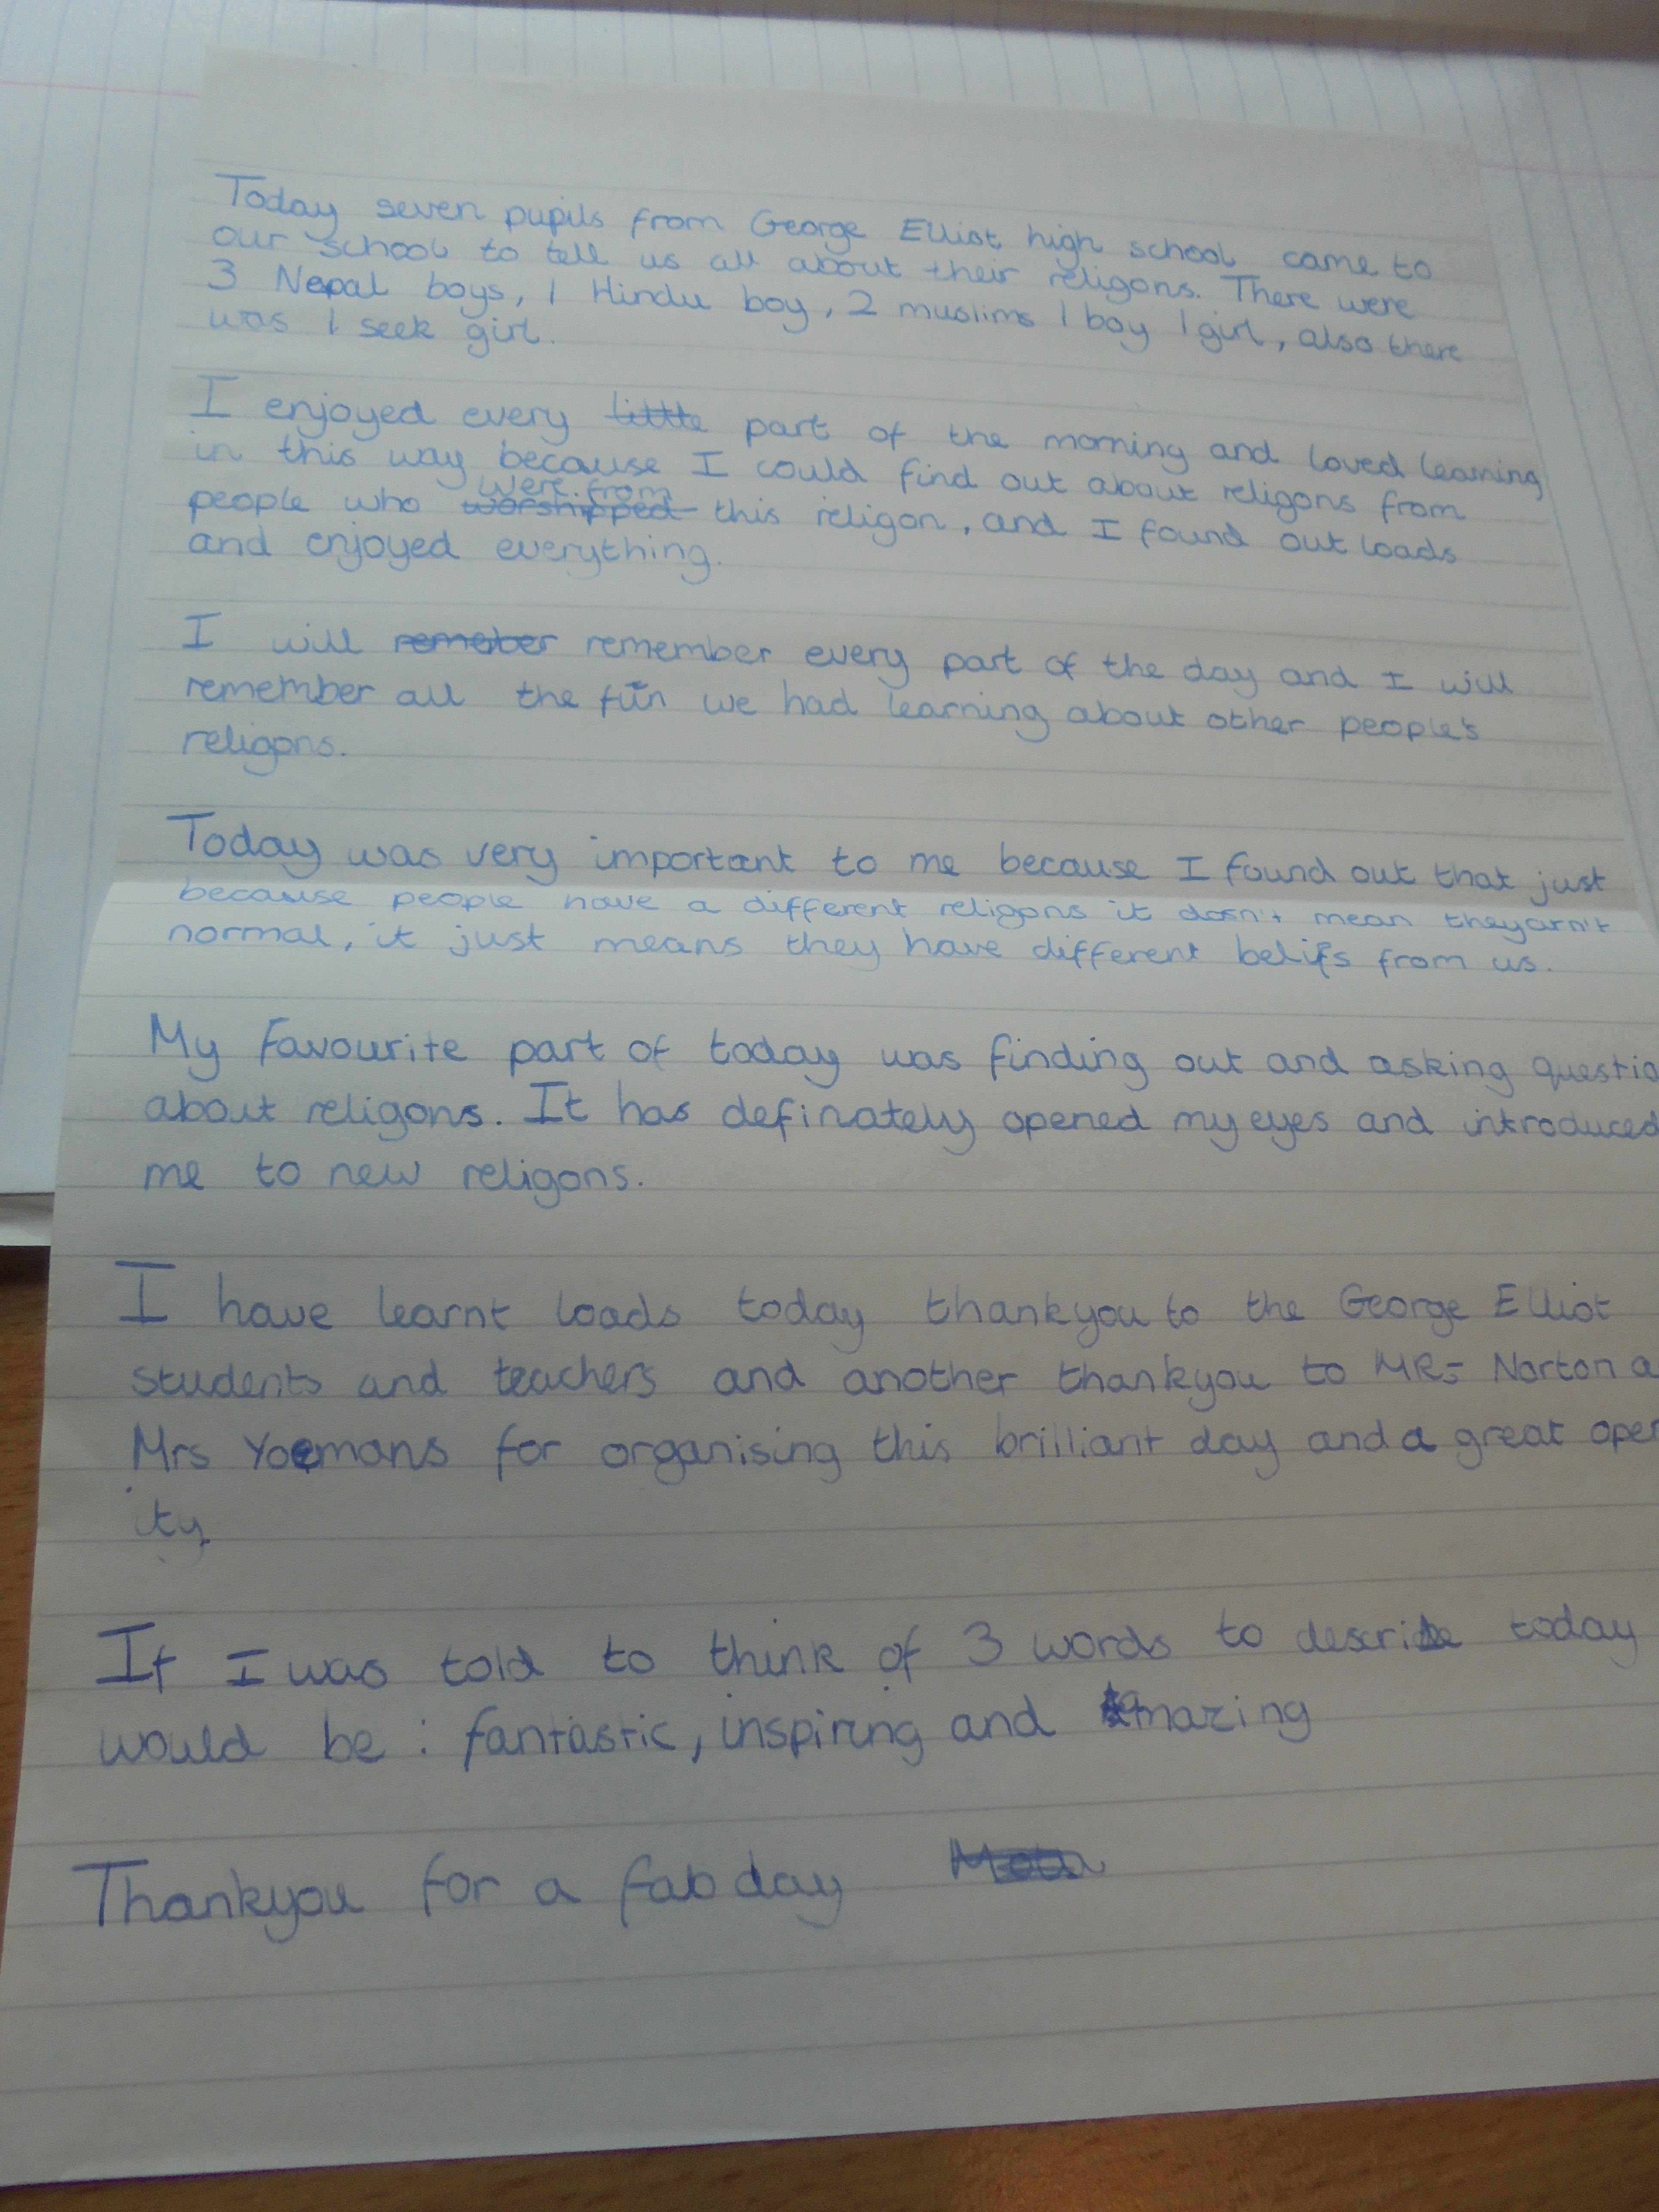 Today seven pupils from George Elliot high school came to
our school to tell us all about their religons. There were
3 Nepal boys, 1 Hindu boy, 2 muslims 1 boy 1 girl, also there
was 1 seek girl.
I enjoyed every little part of the morning and loved learning
in this way because I could find out about religons from
were from
people who worshipped this religon, and I found out loads
and enjoyed everything.
I will remeber remember every part of the day and I will
remember all the fun we had learning about other people's
religons.
Today was very important to me because I found out that just
because people have a different religons it dosn't mean they arn't
normal, it just means they have different belifs from us.
My favourite part of today was finding out and asking questio
about religons. It has definately opened my eyes and introduced
me to new religons.
I have learnt loads today thankyou to the George Elliot
students and teachers and another thankyou to MR. Norton a
Mrs Yoemans for organising this brilliant day and a great oper
ity.
If I was told to think of 3 words to describe today
would be : fantastic, inspiring and amazing
Thankyou for a fab day